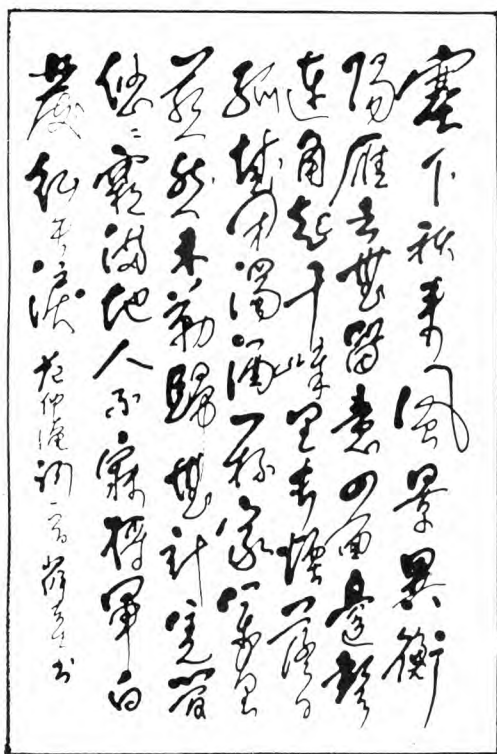 塞下秋来風景異衡
陽雁去無留意四面邊聲
連角起千嶂里長煙落日
孤城閉濁酒一杯家萬里
燕然未勒歸無計羌管
悠々霜滿地人不寐將軍白
發征夫淚 范仲淹詞一首 書